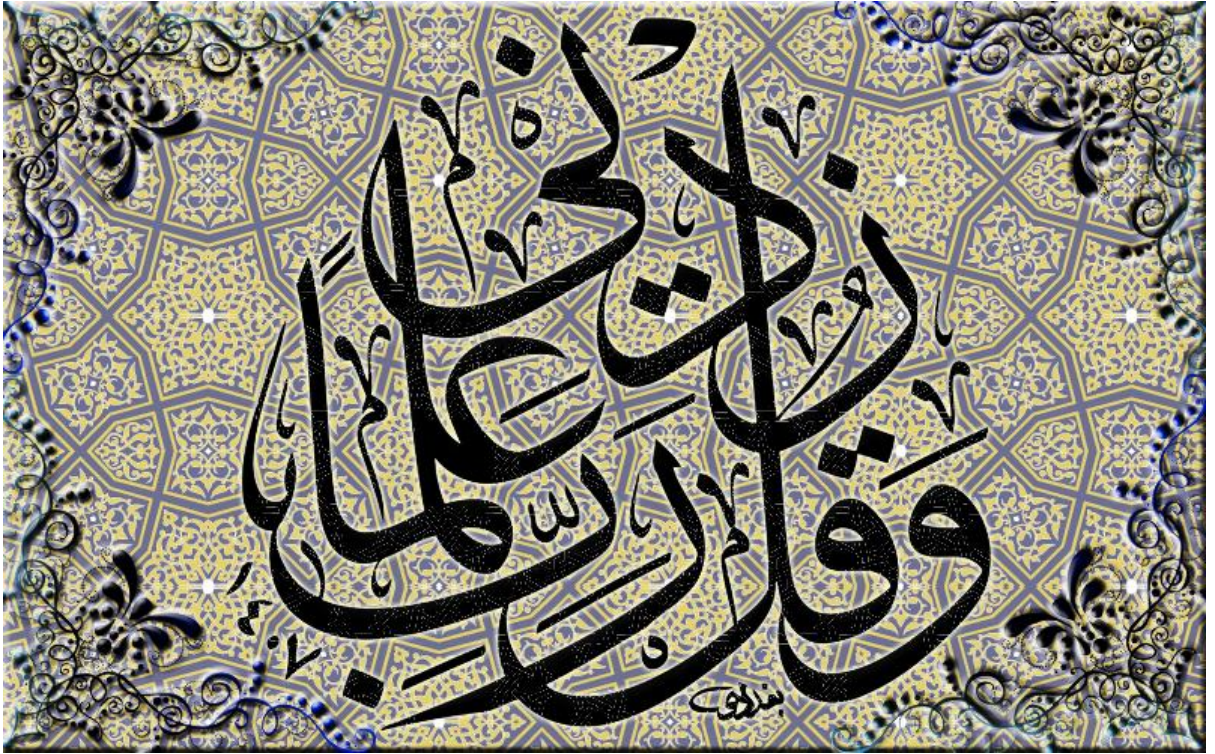 وَقُل رَّبِّ زِدْنِي عِلْمًا